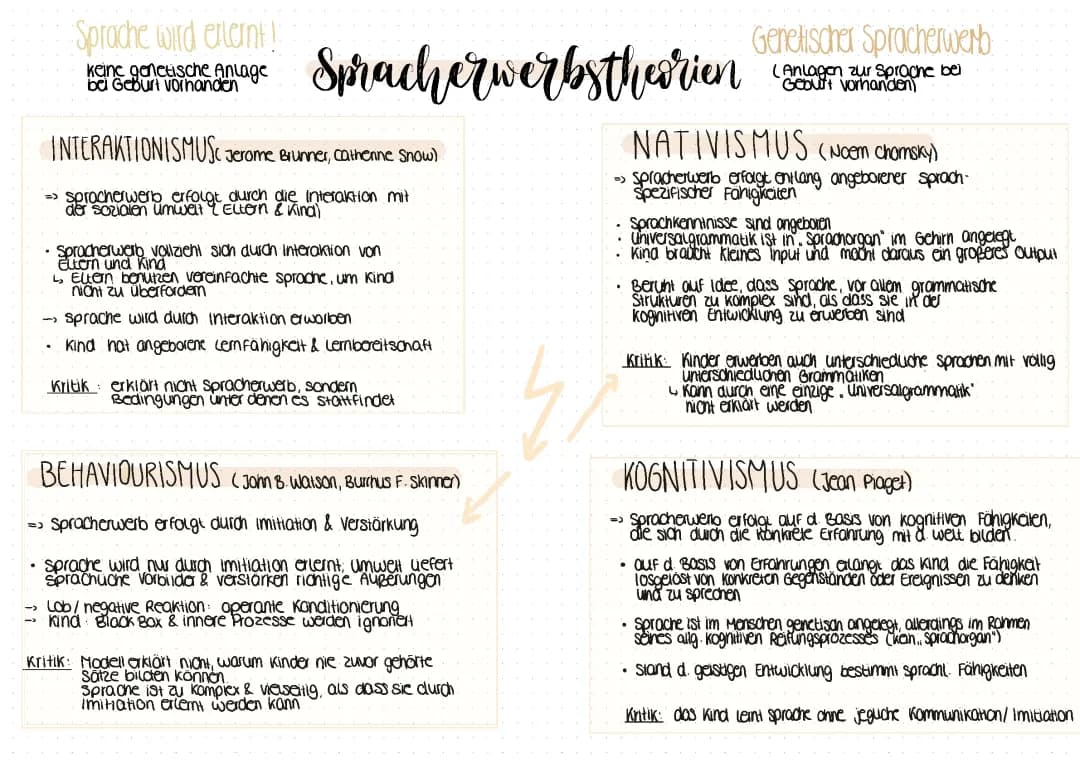 Sprache wird erlernt!
keine genetische Anlage
bei Geburt vorhanden
Spracherwerbstheorien
Genetischer Spracherwerb
(Anlagen zur Sprache bei
Geburt vorhanden)
INTERAKTIONISMUS (Jerome Brunner, Catherine Snow)
=> Spracherwerb erfolgt durch die Interaktion mit
der sozialen Umwelt (Eltern & Kind)
• Spracherwerb vollzieht sich durch Interaktion von
Eltern und Kind
↳ Eltern benutzen vereinfachte Sprache, um Kind
nicht zu überfordern
-> Sprache wird durch Interaktion erworben
• Kind hat angeborene Lernfähigkeit & Lernbereitschaft
Kritik: erklärt nicht Spracherwerb, sondern
Bedingungen unter denen es stattfindet
NATIVISMUS (Noem Chomsky)
=> Spracherwerb erfolgt entlang angeborener sprach-
spezifischer Fähigkeiten
• Sprachkenntnisse sind angeboren
• Universalgrammatik ist in „Sprachorgan" im Gehirn angelegt
• Kind braucht kleines Input und macht daraus ein größeres Output
• Beruht auf Idee, dass Sprache, vor allem grammatische
Strukturen zu komplex sind, als dass sie in der
kognitiven Entwicklung zu erwerben sind
Kritik: Kinder erwerben auch unterschiedliche Sprachen mit völlig
unterschiedlichen Grammatiken
↳ Kann durch eine einzige „Universalgrammatik"
nicht erklärt werden
BEHAVIOURISMUS (John B. Watson, Burrhus F. Skinner)
=> Spracherwerb erfolgt durch Imitiation & Verstärkung
• Sprache wird nur durch Imitiation erlernt; Umwelt liefert
sprachliche Vorbilder & verstärken richtige Äußerungen
-> Lob / negative Reaktion: operante Konditionierung
-> Kind: Black Box & innere Prozesse werden ignoriert
Kritik: Modell erklärt nicht, warum Kinder nie zuvor gehörte
Sätze bilden können
Sprache ist zu komplex & vielseitig, als dass sie durch
Imitiation erlernt werden kann
KOGNITIVISMUS (Jean Piaget)
=> Spracherwerb erfolgt auf d. Basis von kognitiven Fähigkeiten,
die sich durch die konkrete Erfahrung mit d. Welt bilden.
• auf d. Basis von Erfahrungen erlangt das Kind die Fähigkeit
losgelöst von konkreten Gegenständen oder Ereignissen zu denken
und zu sprechen
• Sprache ist im Menschen genetisch angelegt, allerdings im Rahmen
seines allg. kognitiven Reifungsprozesses (kein „Sprachorgan")
• Stand d. geistigen Entwicklung bestimmt sprachl. Fähigkeiten
Kritik: das Kind lernt Sprache ohne jegliche Kommunikation/Imitiation